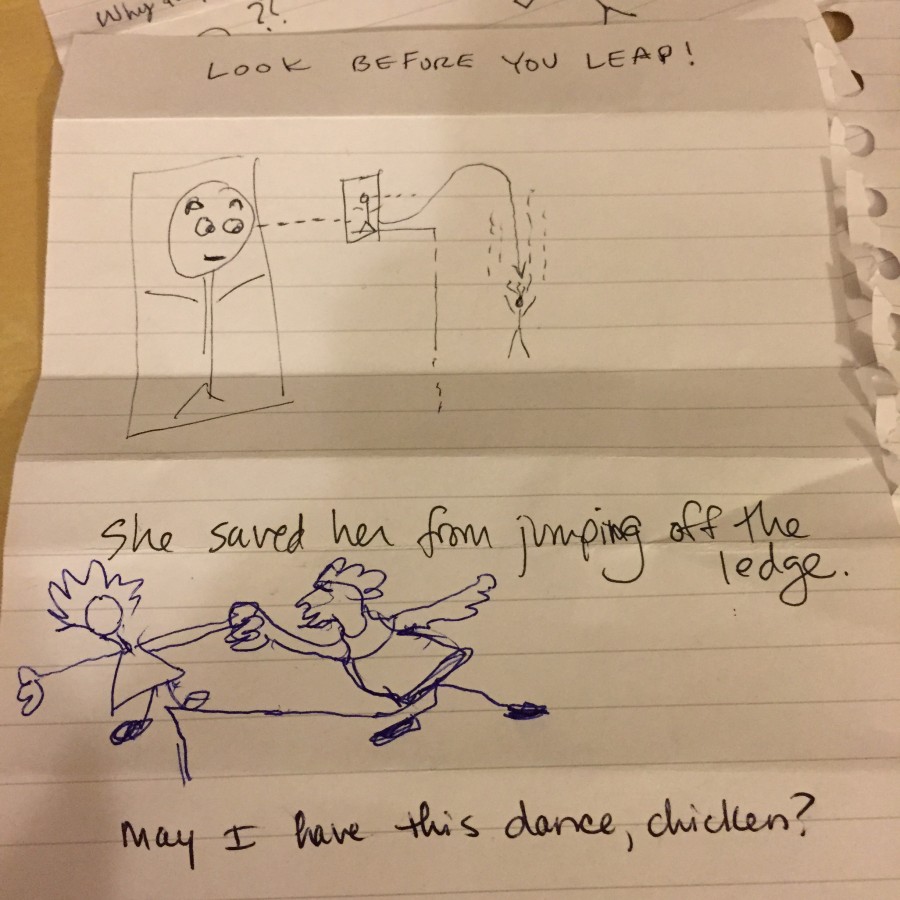 Why
??
LOOK BEFORE YOU LEAP!
She saved her from jumping off the
ledge.
May I have this dance, chicken?